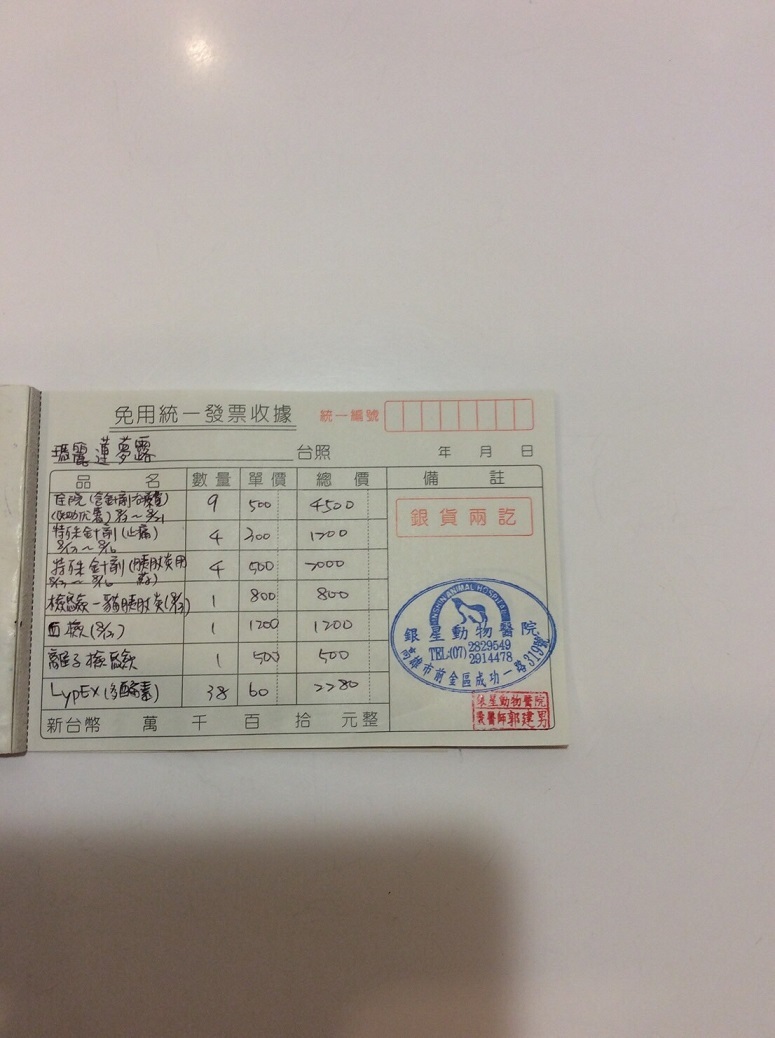 免用統一發票收據
統一編號
瑪麗蓮夢露 台照 年 月 日
品名 數量 單價 總價 備註
住院(含針劑 9 500 4500
特殊針劑(止痛) 4 300 1200
特殊針劑(胰臟炎用 4 500 2000
檢驗-貓胰臟炎(8/13) 1 800 800
血檢 1 1200 1200
離子檢驗 1 500 500
LypEX(多酶素) 38 60 2280
新台幣 萬 千 百 拾 元整
銀貨兩訖
ANIMAL HOSPITAL
銀星動物醫院
TEL:(07)2829549
2914478
高雄市前金區成功一路319號
銀星動物醫院
獸醫師郭建男